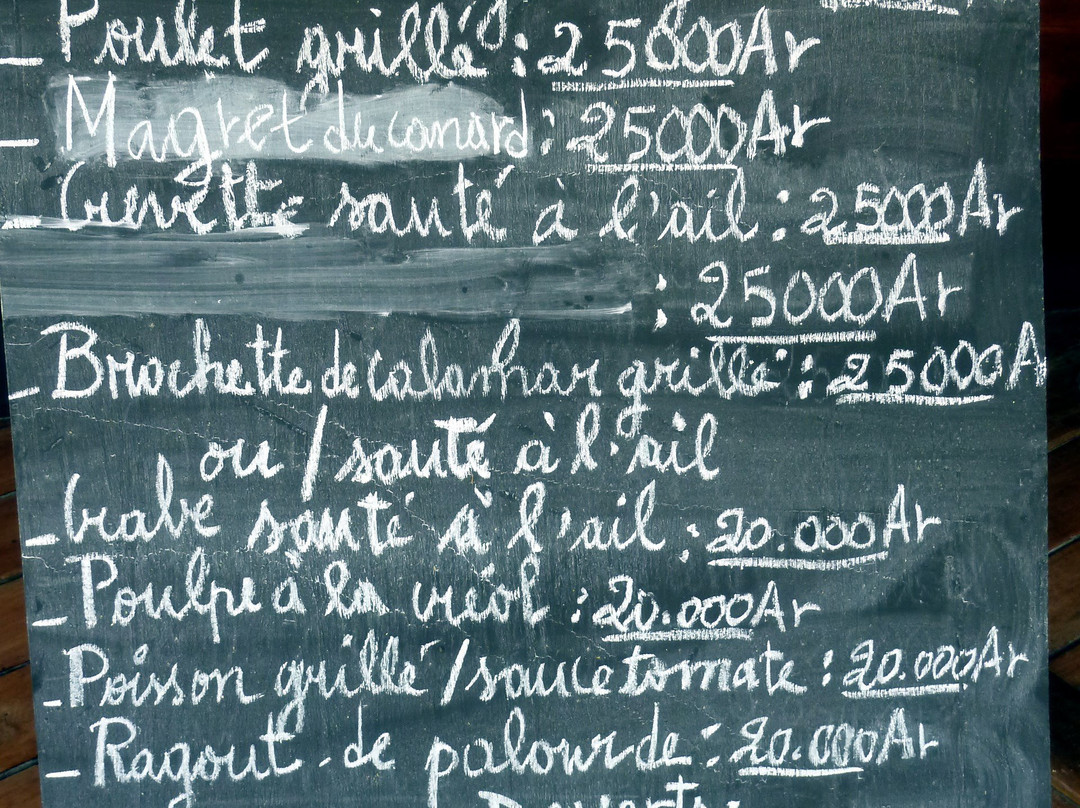 - Poulet grillé : 25000Ar
- Magret du canard : 25000Ar
- Crevette sauté à l'ail : 25000Ar
: 25000Ar
- Brochette de calamhar grillé : 25000A
ou / sauté à l'ail
- Crabe sauté à l'ail : 20.000Ar
- Poulpe à la créol : 20.000Ar
- Poisson grillé / sauce tomate : 20.000Ar
- Ragout de palourde : 20.000Ar